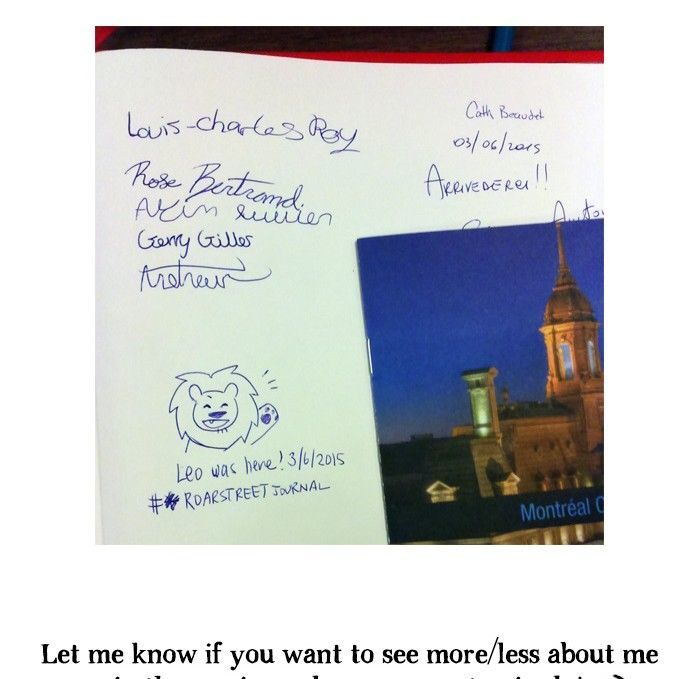 Louis-Charles Roy
Rose Bertrand
Gerry Gilles
Cath Beaudet
03/06/2015
ARRIVEDERCI!!
Leo was here! 3/6/2015
# ROARSTREETJOURNAL
Montréal
Let me know if you want to see more/less about me